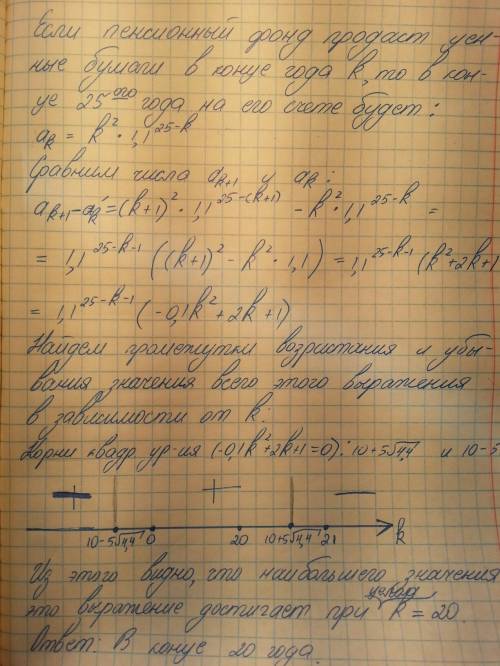 Если пенсионный фонд продаст цен-
ные бумаги в конце года k, то в кон-
це 25ого года на его счете будет:
a_k = k² · 1,1^25-k
Сравним числа a_k+1 и a_k:
a_k+1 - a_k = (k+1)² · 1,1^25-(k+1) - k² · 1,1^25-k =
= 1,1^25-k-1 ((k+1)² - k² · 1,1) = 1,1^25-k-1 (k² + 2k + 1
= 1,1^25-k-1 (-0,1k² + 2k + 1)
Найдем промежутки возрастания и убы-
вания значения всего этого выражения
в зависимости от k:
Корни квадр. ур-ия (-0,1k²+2k+1=0): 10+5√4,4 и 10-5
+ —
10-5√4,4 0 20 10+5√4,4 21 k
Из этого видно, что наибольшего значения
это выражение достигает при целом k = 20.
Ответ: В конце 20 года.